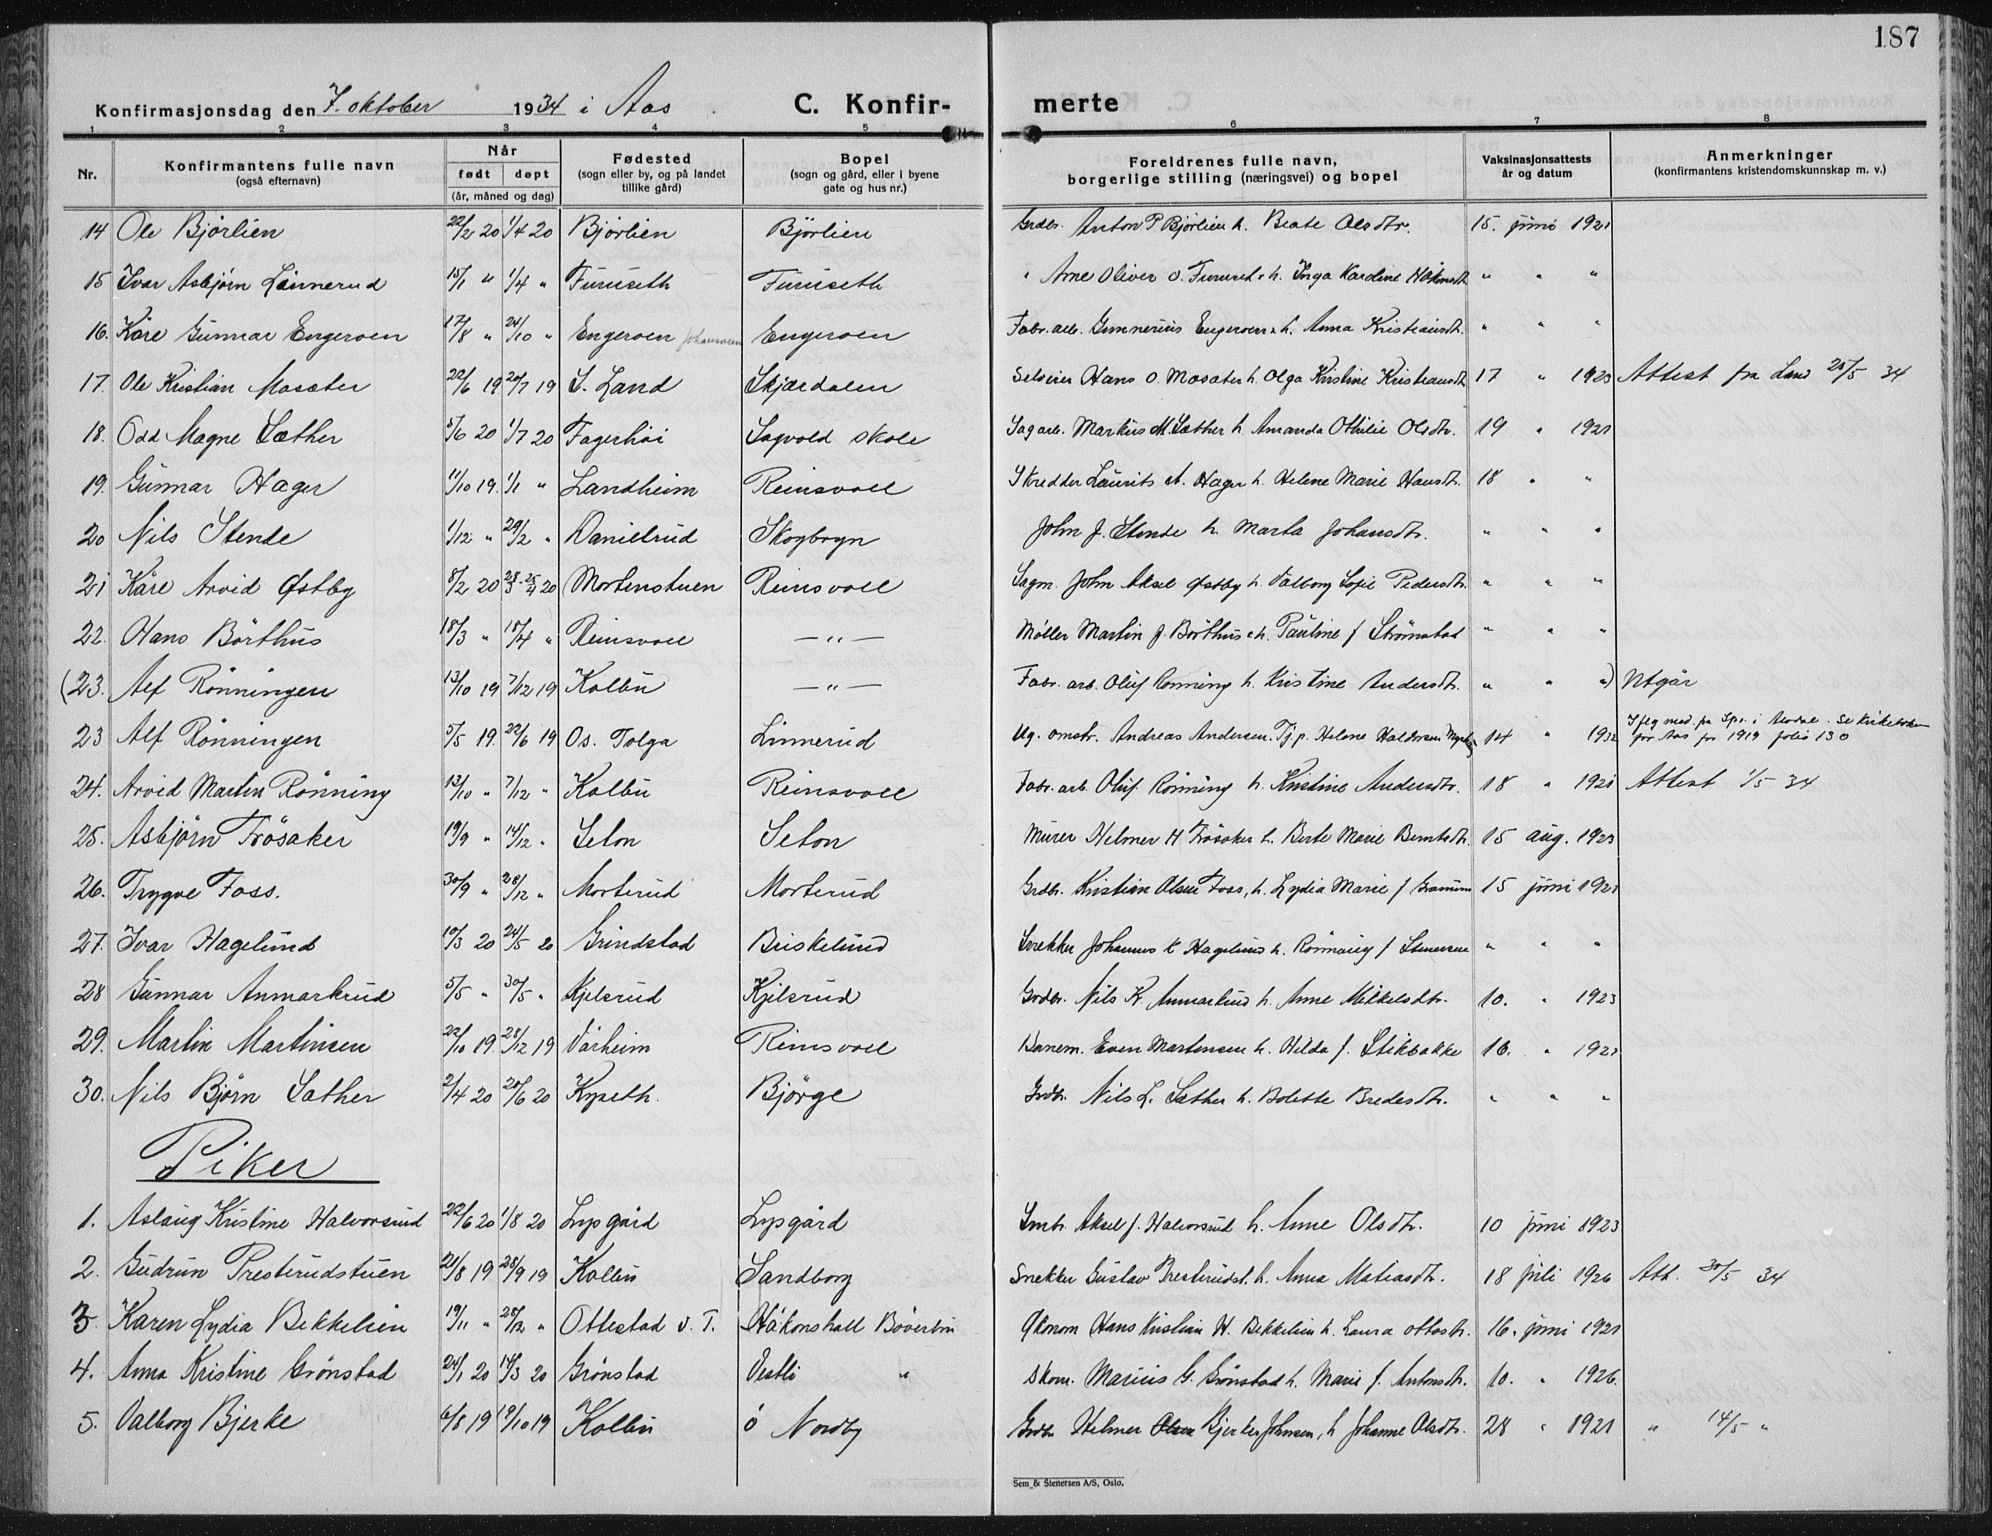 187
Konfirmasjonsdag den 7. oktober 1934 i Aas. C. Konfir- merte
1 2 3 4 5 6 7 8
Nr. Konfirmantens fulle navn (også efternavn) Når født døpt (år, måned og dag) Fødested (sogn eller by, og på landet tillike gård) Bopel (sogn og gård, eller i byene gate og hus nr.) Foreldrenes fulle navn, borgerlige stilling (næringsvei) og bopel Vaksinasjonsattests år og datum Anmerkninger (konfirmantens kristendomskunnskap m. v.)
14 Ole Bjørlien 22/2 20 1/4 20 Bjørlien Bjørlien Grdbr. Anton P Bjørlien h. Beate Olsdtr. 15. juni 1921
15 Ivar Asbjørn Linnerud 15/1 " 1/4 " Furuseth Furuseth " Arne Oliver O. Furuset h. Inga Karoline " " "
16. Kåre Gunnar Engeroen 17/8 " 24/10 " Engeroen Engeroen Fabr. arb. Gunnerius Engeroen h. Anna Kristiansdt. " " "
17. Ole Kristian Mosæter 22/6 19 20/7 19 S. Land Skjædalen Selveier Hans O. Mosæter h. Olga Kristine Kristiansdt 17 " 1923 Attest fra Land 25/5 34
18. Odd Magne Sæther 5/6 20 1/7 20 Fagerhøi Sagvold skole Sagarb. Markus M. Sæther h. Amanda Othilie Olsdtr. 19 " 1921
19. Gunnar Hager 11/10 19. 1/1 " Landheim Reinsvoll Skredder Laurits A. Hager h. Helene Marie Hansdt. 18 " "
20 Nils Stende 1/12 " 29/2 " Danielrud Skogbryn John J. Stende h. Marta Johansdtr. " " "
21 Kåre Arvid Østby 5/2 20 28/3-25/4 20 Mortenstuen Reinsvoll Sagm. John Aksel Østby h. Valborg Sofie Pedersdt. " " "
22. Hans Børthus 18/3 " 18/4 " Reinsvoll — " — Møller Martin J. Børthus h. Pauline f Strønstad " " "
(23. Alf Rønningen 13/10 19 7/12 19 Kolbu — " — Fabr. arb. Oluf Rønning h. Kristine Andersdt. " " ") Utgår
23 Alf Rønningen 5/5 19. 22/6 19 Os. Tolga Linnerud Ug. omstr. Andreas Andersen. Tj.p. Helene Haldorsen 14 " 1932 Se Kirkeboken for Aas for 1919 folio 130
24. Arvid Martin Rønning 13/10 " 7/12 " Kolbu Reinsvoll Fabr. arb. Oluf Rønning h. Kristine Andersdtr. 18 " 1921 Attest 1/5 34
25. Asbjørn Frøsaker 19/9 " 14/12 " Seton Seton Murer Helmer H Frøsaker h. Berte Marie Berntsdt. 15 aug. 1923
26. Trygve Foss. 30/9 " 28/12 " Morterud Morterud Grdbr. Kristian Olsen Foss, h. Lydia Marie f 15 juni 1921
27. Ivar Hagelund 10/3 20 24/5 20 Grindstad Briskelund Snekker Johannes K Hagelund h. Rønnaug f Stenersen " " "
28 Gunnar Anmarkrud 5/5 " 30/5 " Kjelsrud Kjelsrud Grdbr. Nils K. Anmarkrud h. Anne Mikkelsdtr. 10. " 1923
29. Martin Martinsen 22/10 19. 28/12 19 Vårheim Reinsvoll Banem. Even Martinsen h. Hilda f. Stikbakke 16. " 1921
30. Nils Bjørn Sæther 2/4 20 20/6 20 Kyseth. Bjørge Grdbr. Nils L. Sæther h. Bolette Bredesdtr. " " "
Piker
1. Aslaug Kristine Halvorsrud 22/6 20 1/8 20 Lysgård Lysgård Smbr. Aksel J. Halvorsrud h. Anne Olsdtr. 10 juni 1923
2. Gudrun Presterudstuen 21/8 19 28/9 19 Kolbu Sandborg Snekker Gustav Presterudst. h. Anna Matiasdtr. 18 juli 1926 Att. 30/5 34
3 Karen Lydia Bekkelien 19/11 " 28/12 " Ottestad v. T. Håkonshall Bøverbru Økonom Hans Kristian H. Bekkelien h. Laura Ottosdtr. 16. juni 1921
4. Anna Kristine Grønstad 24/1 20 14/3 20 Grønstad Vestli " Skom. Marius G. Grønstad h. Marie f. Antonsdtr. 10. " 1926.
5. Valborg Bjerke 6/8 19 19/10 19 Kolbu ó Nordby Grdbr Helmer Bjerke Johnsen, h Johanne Olsdtr. 28 " 1921 " 14/5 "
Sem & Stenersen A/S, Oslo.